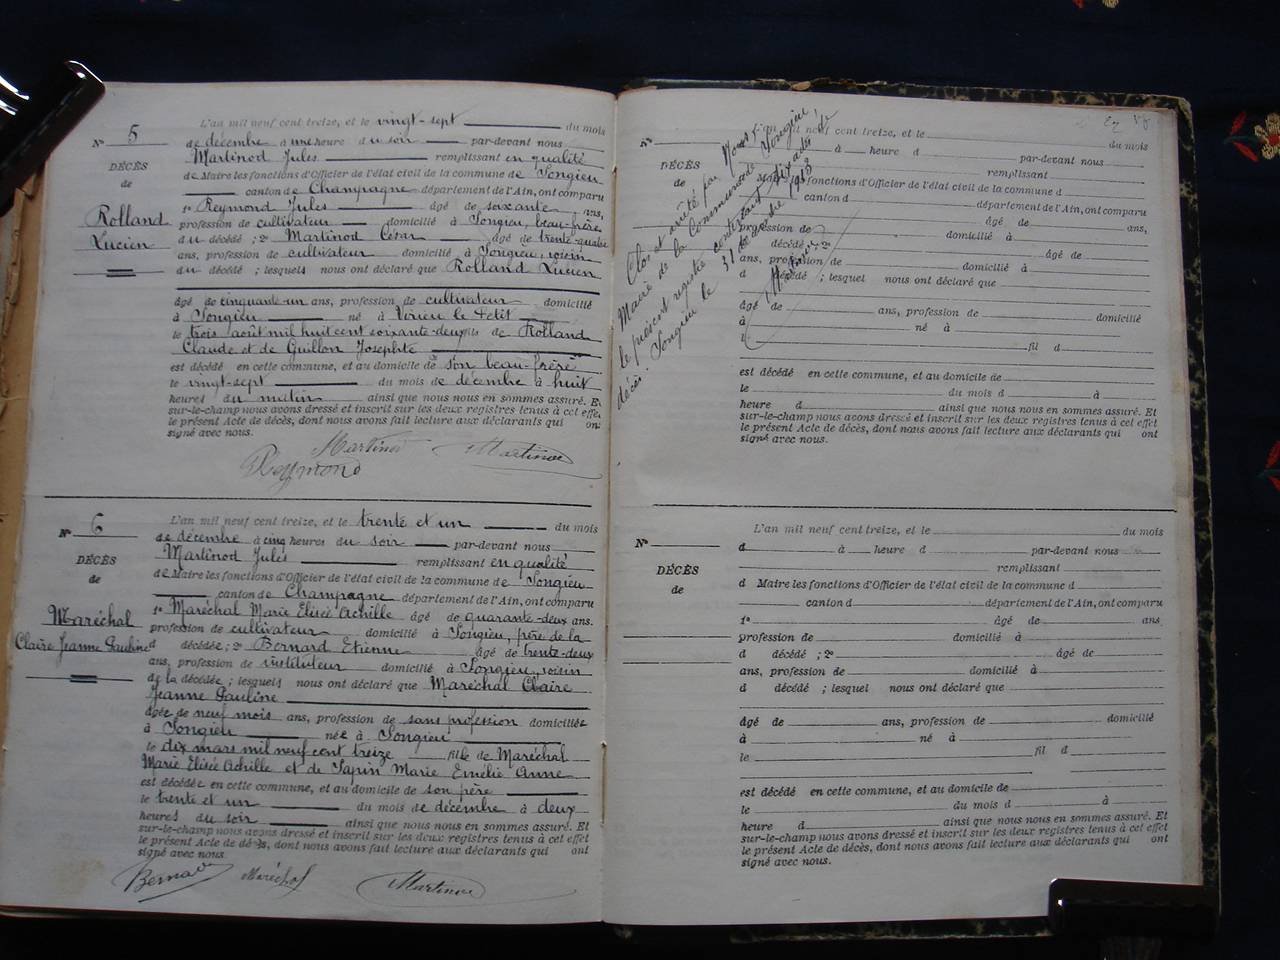 N° 5
DÉCÈS
de
Rolland
Lucien
L'an mil neuf cent treize, et le vingt-sept du mois
de décembre à une heure du soir par-devant nous
Martinod Jules remplissant en qualité
de Maire les fonctions d'Officier de l'état civil de la commune de Songieu
canton de Champagne département de l'Ain, ont comparu
1° Reymond Jules âgé de soixante ans,
profession de cultivateur domicilié à Songieu, beau-frère
du décédé ; 2° Martinod César âgé de trente-quatre
ans, profession de cultivateur domicilié à Songieu, voisin
du décédé ; lesquels nous ont déclaré que Rolland Lucien
âgé de cinquante-un ans, profession de cultivateur domicilié
à Songieu né à Virieu le Petit
le trois août mil huit cent soixante-deux fils de Rolland
Claude et de Guillon Josephte
est décédé en cette commune, et au domicile de son beau-frère
le vingt-sept du mois de décembre à huit
heures du matin ainsi que nous nous en sommes assuré. Et
sur-le-champ nous avons dressé et inscrit sur les deux registres tenus à cet effet
le présent Acte de décès, dont nous avons fait lecture aux déclarants qui ont
signé avec nous.
Martinod Martinod
Reymond
N° 6
DÉCÈS
de
Maréchal
Claire Jeanne Pauline
L'an mil neuf cent treize, et le trente et un du mois
de décembre à cinq heures du soir par-devant nous
Martinod Jules remplissant en qualité
de Maire les fonctions d'Officier de l'état civil de la commune de Songieu
canton de Champagne département de l'Ain, ont comparu
1° Maréchal Marie Elisée Achille âgé de quarante-deux ans.
profession de cultivateur domicilié à Songieu, père de la
d décédée ; 2° Bernard Etienne âgé de trente-deux
ans, profession de instituteur domicilié à Songieu, voisin
de la décédée ; lesquels nous ont déclaré que Maréchal Claire
Jeanne Pauline
âgée de neuf mois ans, profession de sans profession domiciliée
à Songieu née à Songieu
le dix mars mil neuf cent treize fille de Maréchal
Marie Elisée Achille et de Sapin Marie Emélie Anne
est décédée en cette commune, et au domicile de son père
le trente et un du mois de décembre à deux
heures du soir ainsi que nous nous en sommes assuré. Et
sur-le-champ nous avons dressé et inscrit sur les deux registres tenus à cet effet
le présent Acte de décès, dont nous avons fait lecture aux déclarants qui ont
signé avec nous.
Bernard Maréchal Martinod
N°
DÉCÈS
de
Clos et arrêté par Nous
Maire de la Commune de Songieu,
le présent registre contenant six actes de
décès. Songieu le 31 décembre 1913
Martinod
L'an mil neuf cent treize, et le du mois
d à heure d par-devant nous
remplissant
fonctions d'Officier de l'état civil de la commune d
canton d département de l'Ain, ont comparu
âgé de ans,
profession de domicilié à
décédé ; 2° âgé de
ans, profession de domicilié à
d décédé ; lesquel nous ont déclaré que
âgé de ans, profession de domicilié
à né à
le fil d
est décédé en cette commune, et au domicile de
le du mois d à
heure d ainsi que nous nous en sommes assuré. Et
sur-le-champ nous avons dressé et inscrit sur les deux registres tenus à cet effet
le présent Acte de décès, dont nous avons fait lecture aux déclarants qui ont
signé avec nous.
N°
DÉCÈS
de
L'an mil neuf cent treize, et le du mois
d à heure d par-devant nous
remplissant
d Maire les fonctions d'Officier de l'état civil de la commune d
canton d département de l'Ain, ont comparu
1° âgé de ans
profession de domicilié à
d décédé ; 2° âgé de
ans, profession de domicilié à
d décédé ; lesquel nous ont déclaré que
âgé de ans, profession de domicilié
à né à
le fil d
est décédé en cette commune, et au domicile de
le du mois d à
heure d ainsi que nous nous en sommes assuré. Et
sur-le-champ nous avons dressé et inscrit sur les deux registres tenus à cet effet
le présent Acte de décès, dont nous avons fait lecture aux déclarants qui ont
signé avec nous.